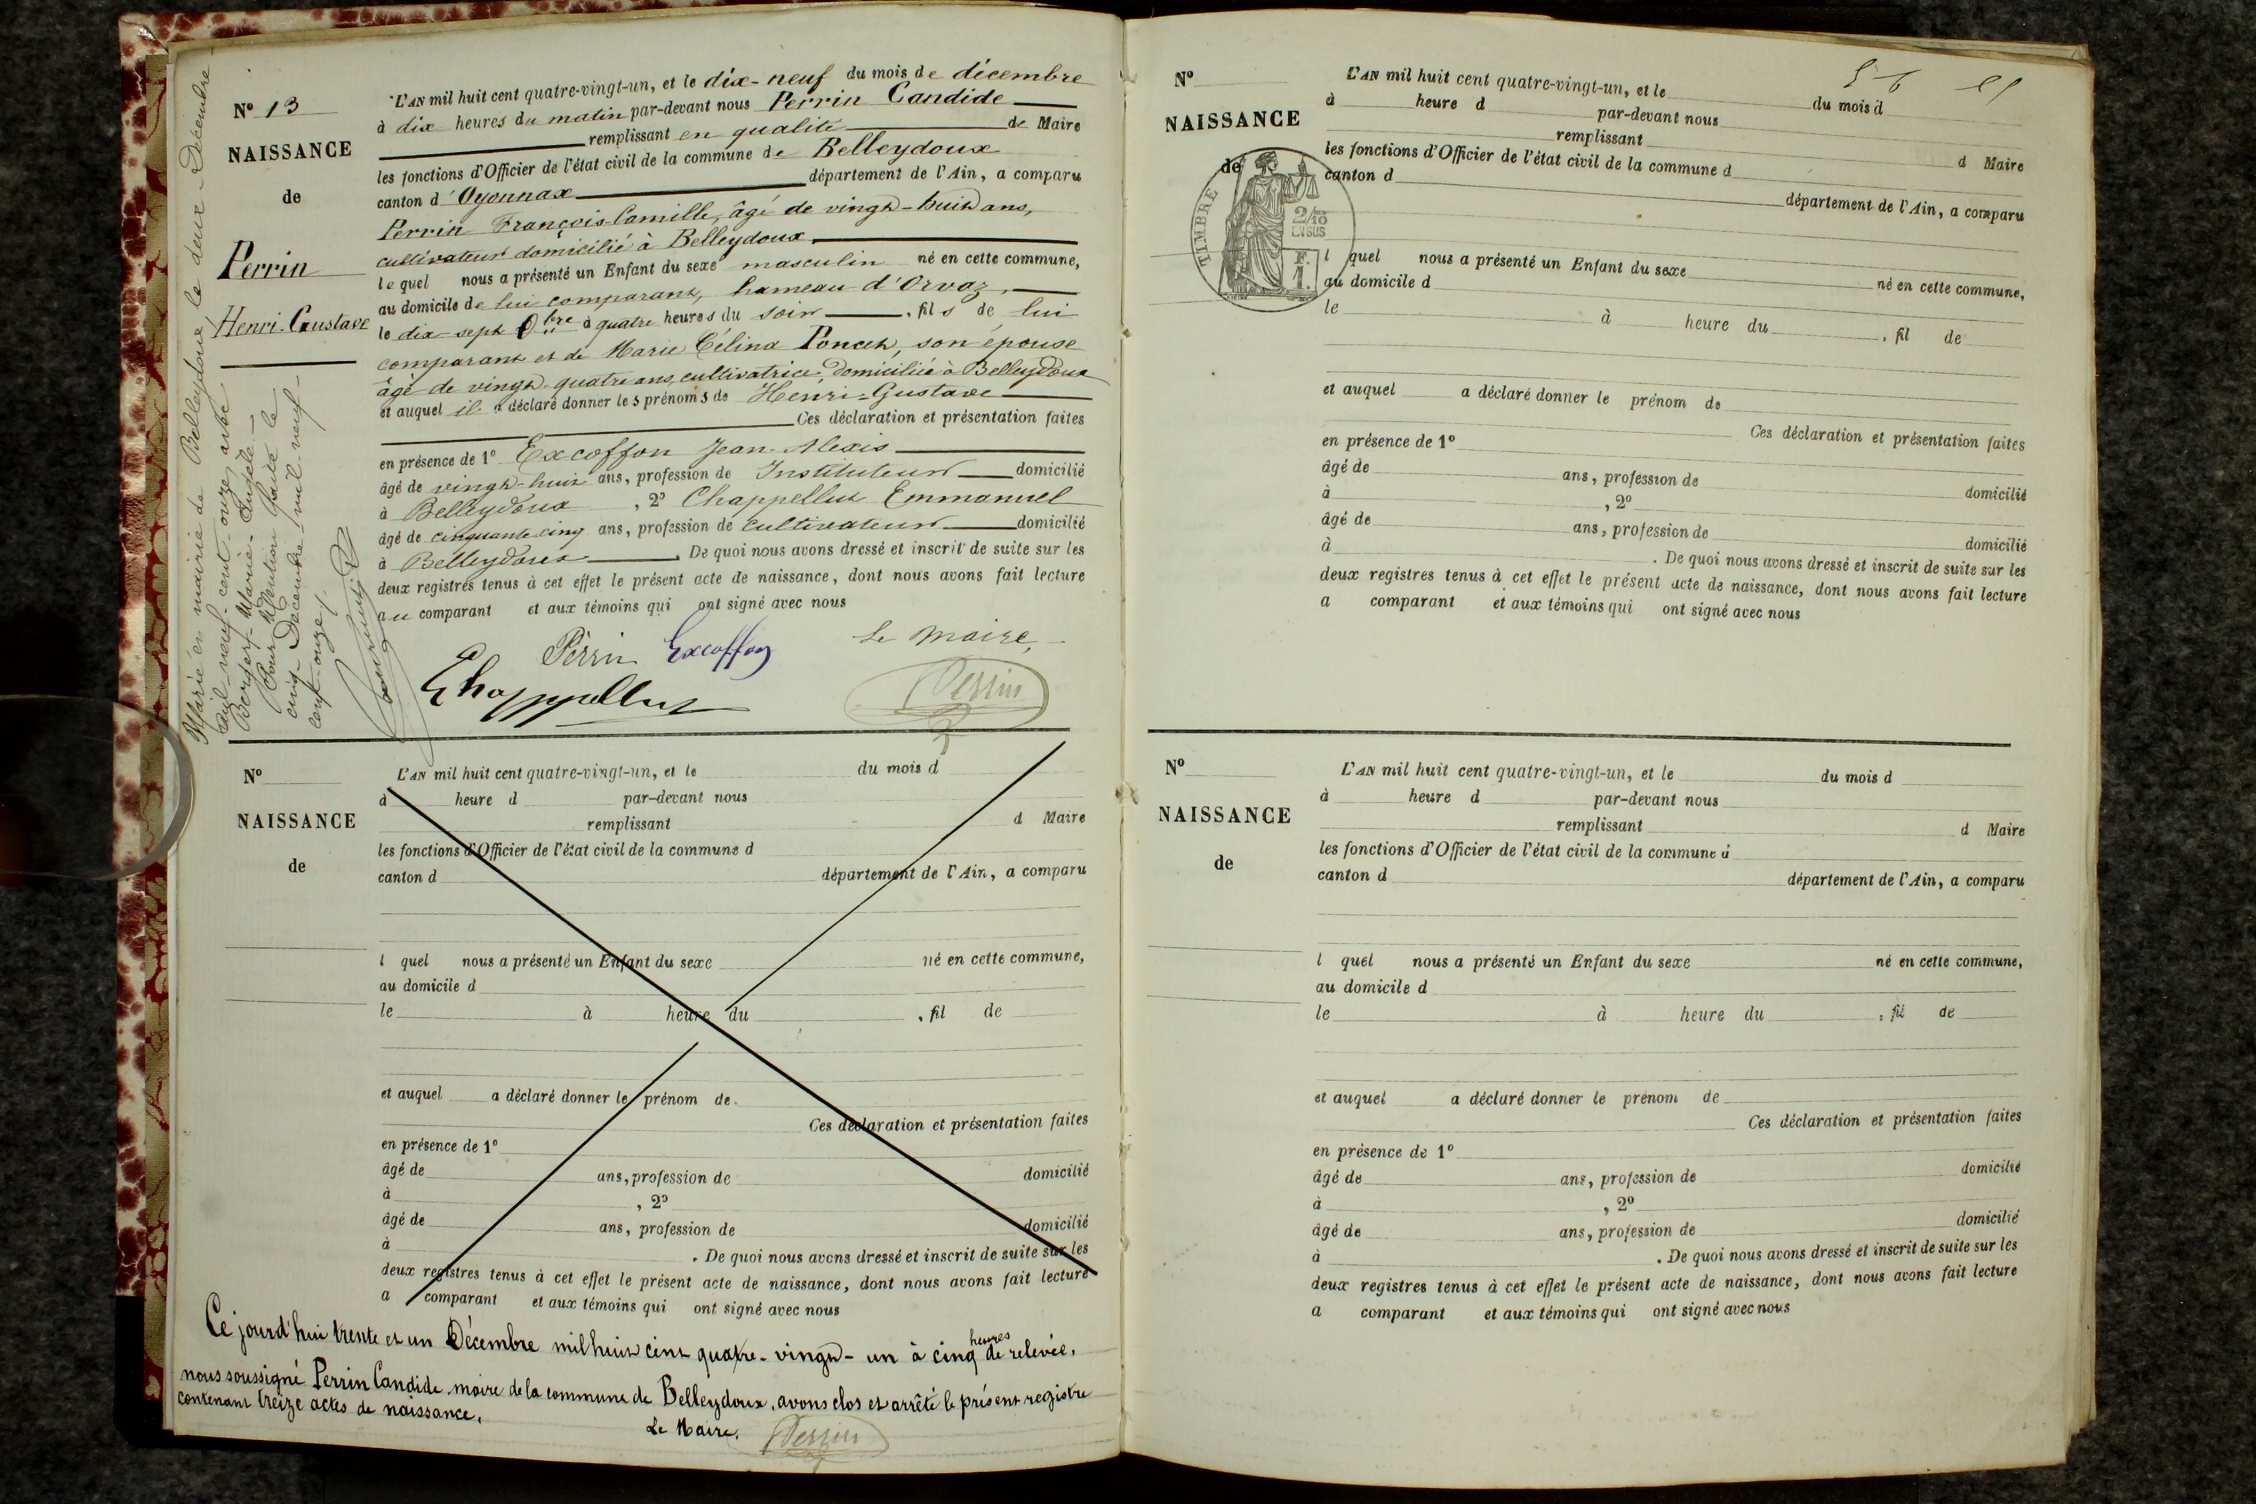 N° 13
NAISSANCE
de
Perrin
Henri-Gustave
Marié en mairie de Belleydoux, le deux Décembre
mil-neuf-cent-onze avec
Berger Marie-
Pour Mention faite le
cinq Décembre mil-neuf-
cent-onze.
L'AN mil huit cent quatre-vingt-un, et le dix-neuf du mois de décembre
à dix heures du matin par-devant nous Perrin Candide
remplissant en qualité de Maire
les fonctions d'Officier de l'état civil de la commune de Belleydoux
canton d'Oyonnax département de l'Ain, a comparu
Perrin François Camille, âgé de vingt-huit ans,
cultivateur domicilié à Belleydoux
lequel nous a présenté un Enfant du sexe masculin né en cette commune,
au domicile de lui comparant, hameau d'Orvaz,
le dix sept Xbre à quatre heures du soir, fils de lui
comparant et de Marie Célina Poncet, son épouse
âgé de vingt-quatre ans, cultivatrice domiciliée à Belleydoux
et auquel il a déclaré donner les prénoms de Henri-Gustave
Ces déclaration et présentation faites
en présence de 1° Excoffon Jean-Alexis
âgé de vingt-huit ans, profession de Instituteur domicilié
à Belleydoux, 2° Chappelluz Emmanuel
âgé de cinquante cinq ans, profession de cultivateur domicilié
à Belleydoux. De quoi nous avons dressé et inscrit de suite sur les
deux registres tenus à cet effet le présent acte de naissance, dont nous avons fait lecture
au comparant et aux témoins qui ont signé avec nous
Perrin Excoffon Le Maire,
Chappelluz Perrin
N°
NAISSANCE
de
L'AN mil huit cent quatre-vingt-un, et le du mois d
à heure d par-devant nous
remplissant d Maire
les fonctions d'Officier de l'état civil de la commune d
canton d département de l'Ain, a comparu
l quel nous a présenté un Enfant du sexe né en cette commune,
au domicile d
le à heure du , fil de
et auquel a déclaré donner le prénom de
Ces déclaration et présentation faites
en présence de 1°
âgé de ans, profession de domicilié
à , 2°
âgé de ans, profession de domicilié
à . De quoi nous avons dressé et inscrit de suite sur les
deux registres tenus à cet effet le présent acte de naissance, dont nous avons fait lecture
a comparant et aux témoins qui ont signé avec nous
Ce jourd'hui trente et un Décembre mil huit cent quatre-vingt-un à cinq heures de relevée,
nous soussigné Perrin Candide maire de la commune de Belleydoux, avons clos et arrêté le présent registre
contenant treize actes de naissance.
Le Maire,
Perrin
N°
NAISSANCE
de
TIMBRE
2/10
EN SUS
F.
1.
L'AN mil huit cent quatre-vingt-un, et le du mois d
à heure d par-devant nous
remplissant d Maire
les fonctions d'Officier de l'état civil de la commune d
canton d département de l'Ain, a comparu
l quel nous a présenté un Enfant du sexe né en cette commune,
au domicile d
le à heure du , fil de
et auquel a déclaré donner le prénom de
Ces déclaration et présentation faites
en présence de 1°
âgé de ans, profession de domicilié
à , 2°
âgé de ans, profession de domicilié
à . De quoi nous avons dressé et inscrit de suite sur les
deux registres tenus à cet effet le présent acte de naissance, dont nous avons fait lecture
a comparant et aux témoins qui ont signé avec nous
N°
NAISSANCE
de
L'AN mil huit cent quatre-vingt-un, et le du mois d
à heure d par-devant nous
remplissant d Maire
les fonctions d'Officier de l'état civil de la commune d
canton d département de l'Ain, a comparu
l quel nous a présenté un Enfant du sexe né en cette commune,
au domicile d
le à heure du , fil de
et auquel a déclaré donner le prénom de
Ces déclaration et présentation faites
en présence de 1°
âgé de ans, profession de domicilié
à , 2°
âgé de ans, profession de domicilié
à . De quoi nous avons dressé et inscrit de suite sur les
deux registres tenus à cet effet le présent acte de naissance, dont nous avons fait lecture
a comparant et aux témoins qui ont signé avec nous